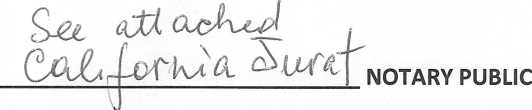 See attached
California Jurat NOTARY PUBLIC